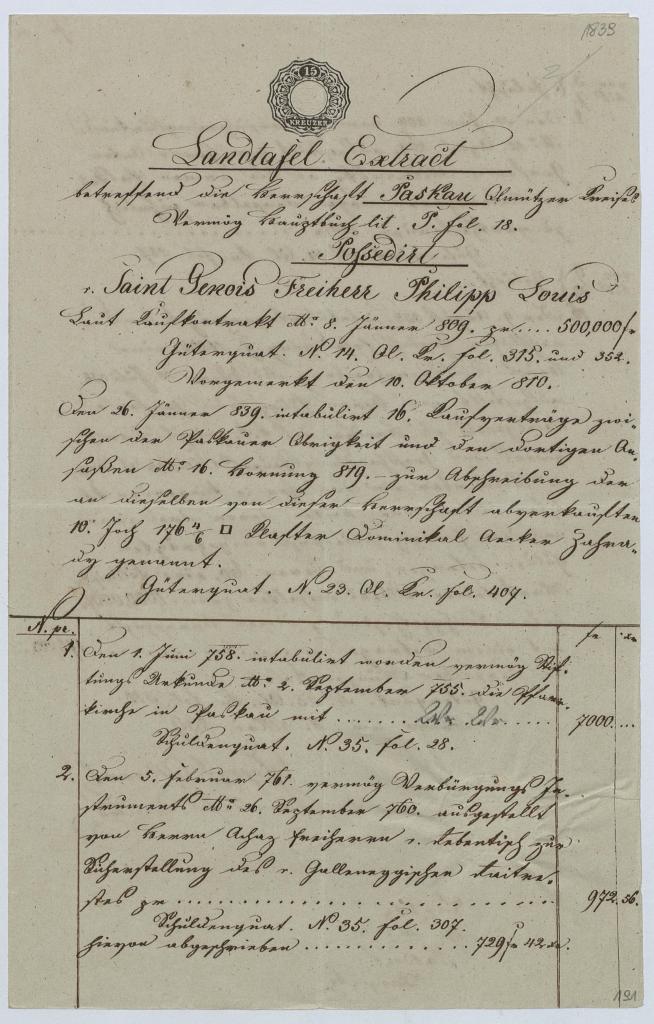 1839
15
KREUZER
Landtafel Extract
betreffend die Herrschaft Paskau Olmützer Kreises
Vermög Hauptbuch lit. P. fol. 18.
Possedirt
v. Saint Genois Freiherr Philipp Louis
Laut Kaufkontrakt dto 8. Jänner 809. pr.... 500,000 fr
Güterquat. N. 14. Ol. Kr. fol. 315. und 352.
Vorgemerkt den 10. Oktober 810.
Den 26. Jänner 839. intabulirt 16. Kaufverträge zwi-
schen der Paskauer Obrigkeit und den dortigen An-
saßen dto 16. Hornung 819. zur Abschreibung der
an dieselben von dieser Herrschaft abverkauften
10. Joch 176 4/6 □ Klafter Dominikal Aecker Zahra-
dy genannt.
Güterquat. N. 23. Ol. Kr. fol. 407.
N. pr. fr xr
1. Den 1. Juni 758. intabulirt worden vermög Stif-
tungs Urkunde dto 2. September 755. die Pfarr-
kirche in Paskau mit ....... .... 7000....
Schuldenquat. N. 35. fol. 28.
2. Den 5. Februar 761. vermög Verbürgungs In-
struments dto 26. September 760. ausgestellt
von Herrn Achaz Freiherrn v. zur
Sicherstellung des v. Galleneggischen Raitre-
stes pr ........................ 972. 56.
Schuldenquat. N. 35. fol. 307.
hievon abgeschrieben ............. 729 fr 42 xr.
191